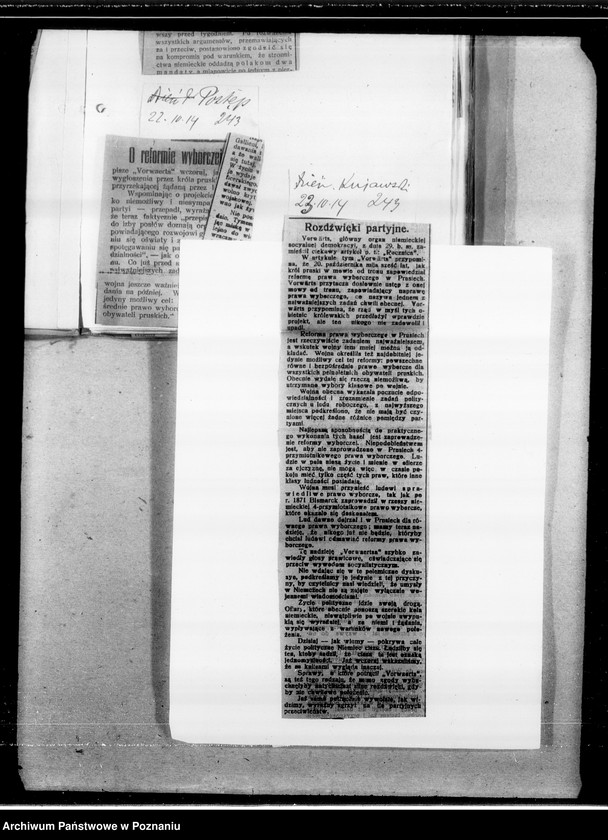 wszy przed tygodniem. Po rozważeniu
wszystkich argumentów, przemawiających
za i przeciw, postanowiono zgodzić się
na kompromis pod warunkiem, że stronni-
ctwa niemieckie oddadzą polakom dwa
mandaty, a mianowicie po jednym z nich
Postęp
22.10.14 243
O reformie wyborczej
pisze „Vorwaerts" wczoraj,
wygłoszenia przez króla prusk
przyrzekającej żądaną przez
Wspominając o projekcie
ko niemożliwy i niesympa
partyi — przepadł, wyraża
że teraz faktycznie „przepis
do izby posłów domaga
powiadającego rozwojowi
niu się oświaty i
spotęgowaniu się
działności",
Co już przed
wojna jeszcze ważnie
dania na później. W
jedyny możliwy cel:
średnie prawo wybor
obywateli pruskich."
Dzien. Kujawski
23.10.14 243
Rozdźwięki partyjne.
Vorwärts, główny organ niemieckiej
socyalnej demokracyi, z dnia 20. b. m. za-
mieścił ciekawy artykuł p. t: „Rocznica".
W artykule tym „Vorwärts" przypomi-
na, że 20. października mija sześć lat, jak
król pruski w mowie od tronu zapowiedział
reformę prawa wyborczego w Prusiech.
Vorwärts przytacza dosłownie ustęp z owej
mowy od tronu, zapowiadający naprawę
prawa wyborczego, co nazywa jednem z
najważniejszych zadań chwili obecnej. Vor-
wärts przypomina, że rząd w myśl tych o-
bietnic królewskich przedłożył wprawdzie
projekt, ale ten nikogo nie zadowolił i
upadł.
Reforma prawa wyborczego w Prusiech
jest rzeczywiście zadaniem najważniejszem,
a wskutek wojny tem mniej można ją od-
kładać. Wojna określiła też najdobitniej je-
dynie możliwy cel tej reformy: powszechne
równe i bezpośrednie prawo wyborcze dla
wszystkich pełnoletnich obywateli pruskich.
Obecnie wydaje się rzeczą niemożliwą, by
utrzymane wybory klasowe po wojnie.
Wojna obecna wykazała poczucie odpo-
wiedzialności i zrozumienie zadań polity-
cznych u ludu roboczego, z najwyższego
miejsca podkreślono, że nie mają być czy-
nione więcej żadne różnice pomiędzy par-
tyami.
Najlepszą sposobnością do praktyczne-
go wykonania tych haseł jest zaprowadze-
nie reformy wyborczej. Niepodobieństwem
jest, aby nie zaprowadzono w Prusiech 4-
przymiotnikowego prawa wyborczego. Lu-
dzie w pola niosą życie i mienie w ofierze
za ojczyznę, nie mogą więc w czasie poko-
ju mieć tylko część tych praw, które inne
klasy ludności posiadają.
Wojna musi przynieść ludowi spra-
wiedliwe prawo wyborcze, tak jak po
r. 1871 Bismarck zaprowadził w rzeszy nie-
mieckiej 4-przymiotnikowe prawo wyborcze,
które okazało się doskonałem.
Lud dawno dojrzał i w Prusiech dla ró-
wnego prawa wyborczego; mamy teraz na-
dzieję, że nikogo już nie będzie, któryby
chciał ludowi odmawiać reformy prawa wy-
borczego.
Tę nadzieję „Vorwaertsa" szybko za-
wiodły głosy prawicowe, oświadczające się
przeciw wywodom socyalistycznym.
Nie wdając się w te polemiczne dysku-
sye, podkreślamy je jedynie z tej przyczy-
ny, by czytelnicy nasi wiedzieli, że umysły
w Niemczech nie są zajęte wyłącznie wo-
jennemi wiadomościami.
Życie polityczne idzie swoją drogą.
Ofiary, które obecnie ponoszą szerokie koła
niemieckie, niewątpliwie po wojnie uwypu-
klą się wyraźniej, a za niemi i żądania,
wypływające z warunków nowego poło-
żenia.
Dzisiaj — jak wiemy — pokrywa całe
życie polityczne Niemiec cisza. Łudziłby się
ten, ktoby sądził, że cisza ta jest oznaką
jednomyślności. Już wczoraj wskazaliśmy,
że za kulisami wygląda inaczej.
Sprawy, o które potrącił „Vorwaerts",
są też tego rodzaju, że mimo zgody
przeciwieństw.
Archiwum Państwowe w Poznaniu